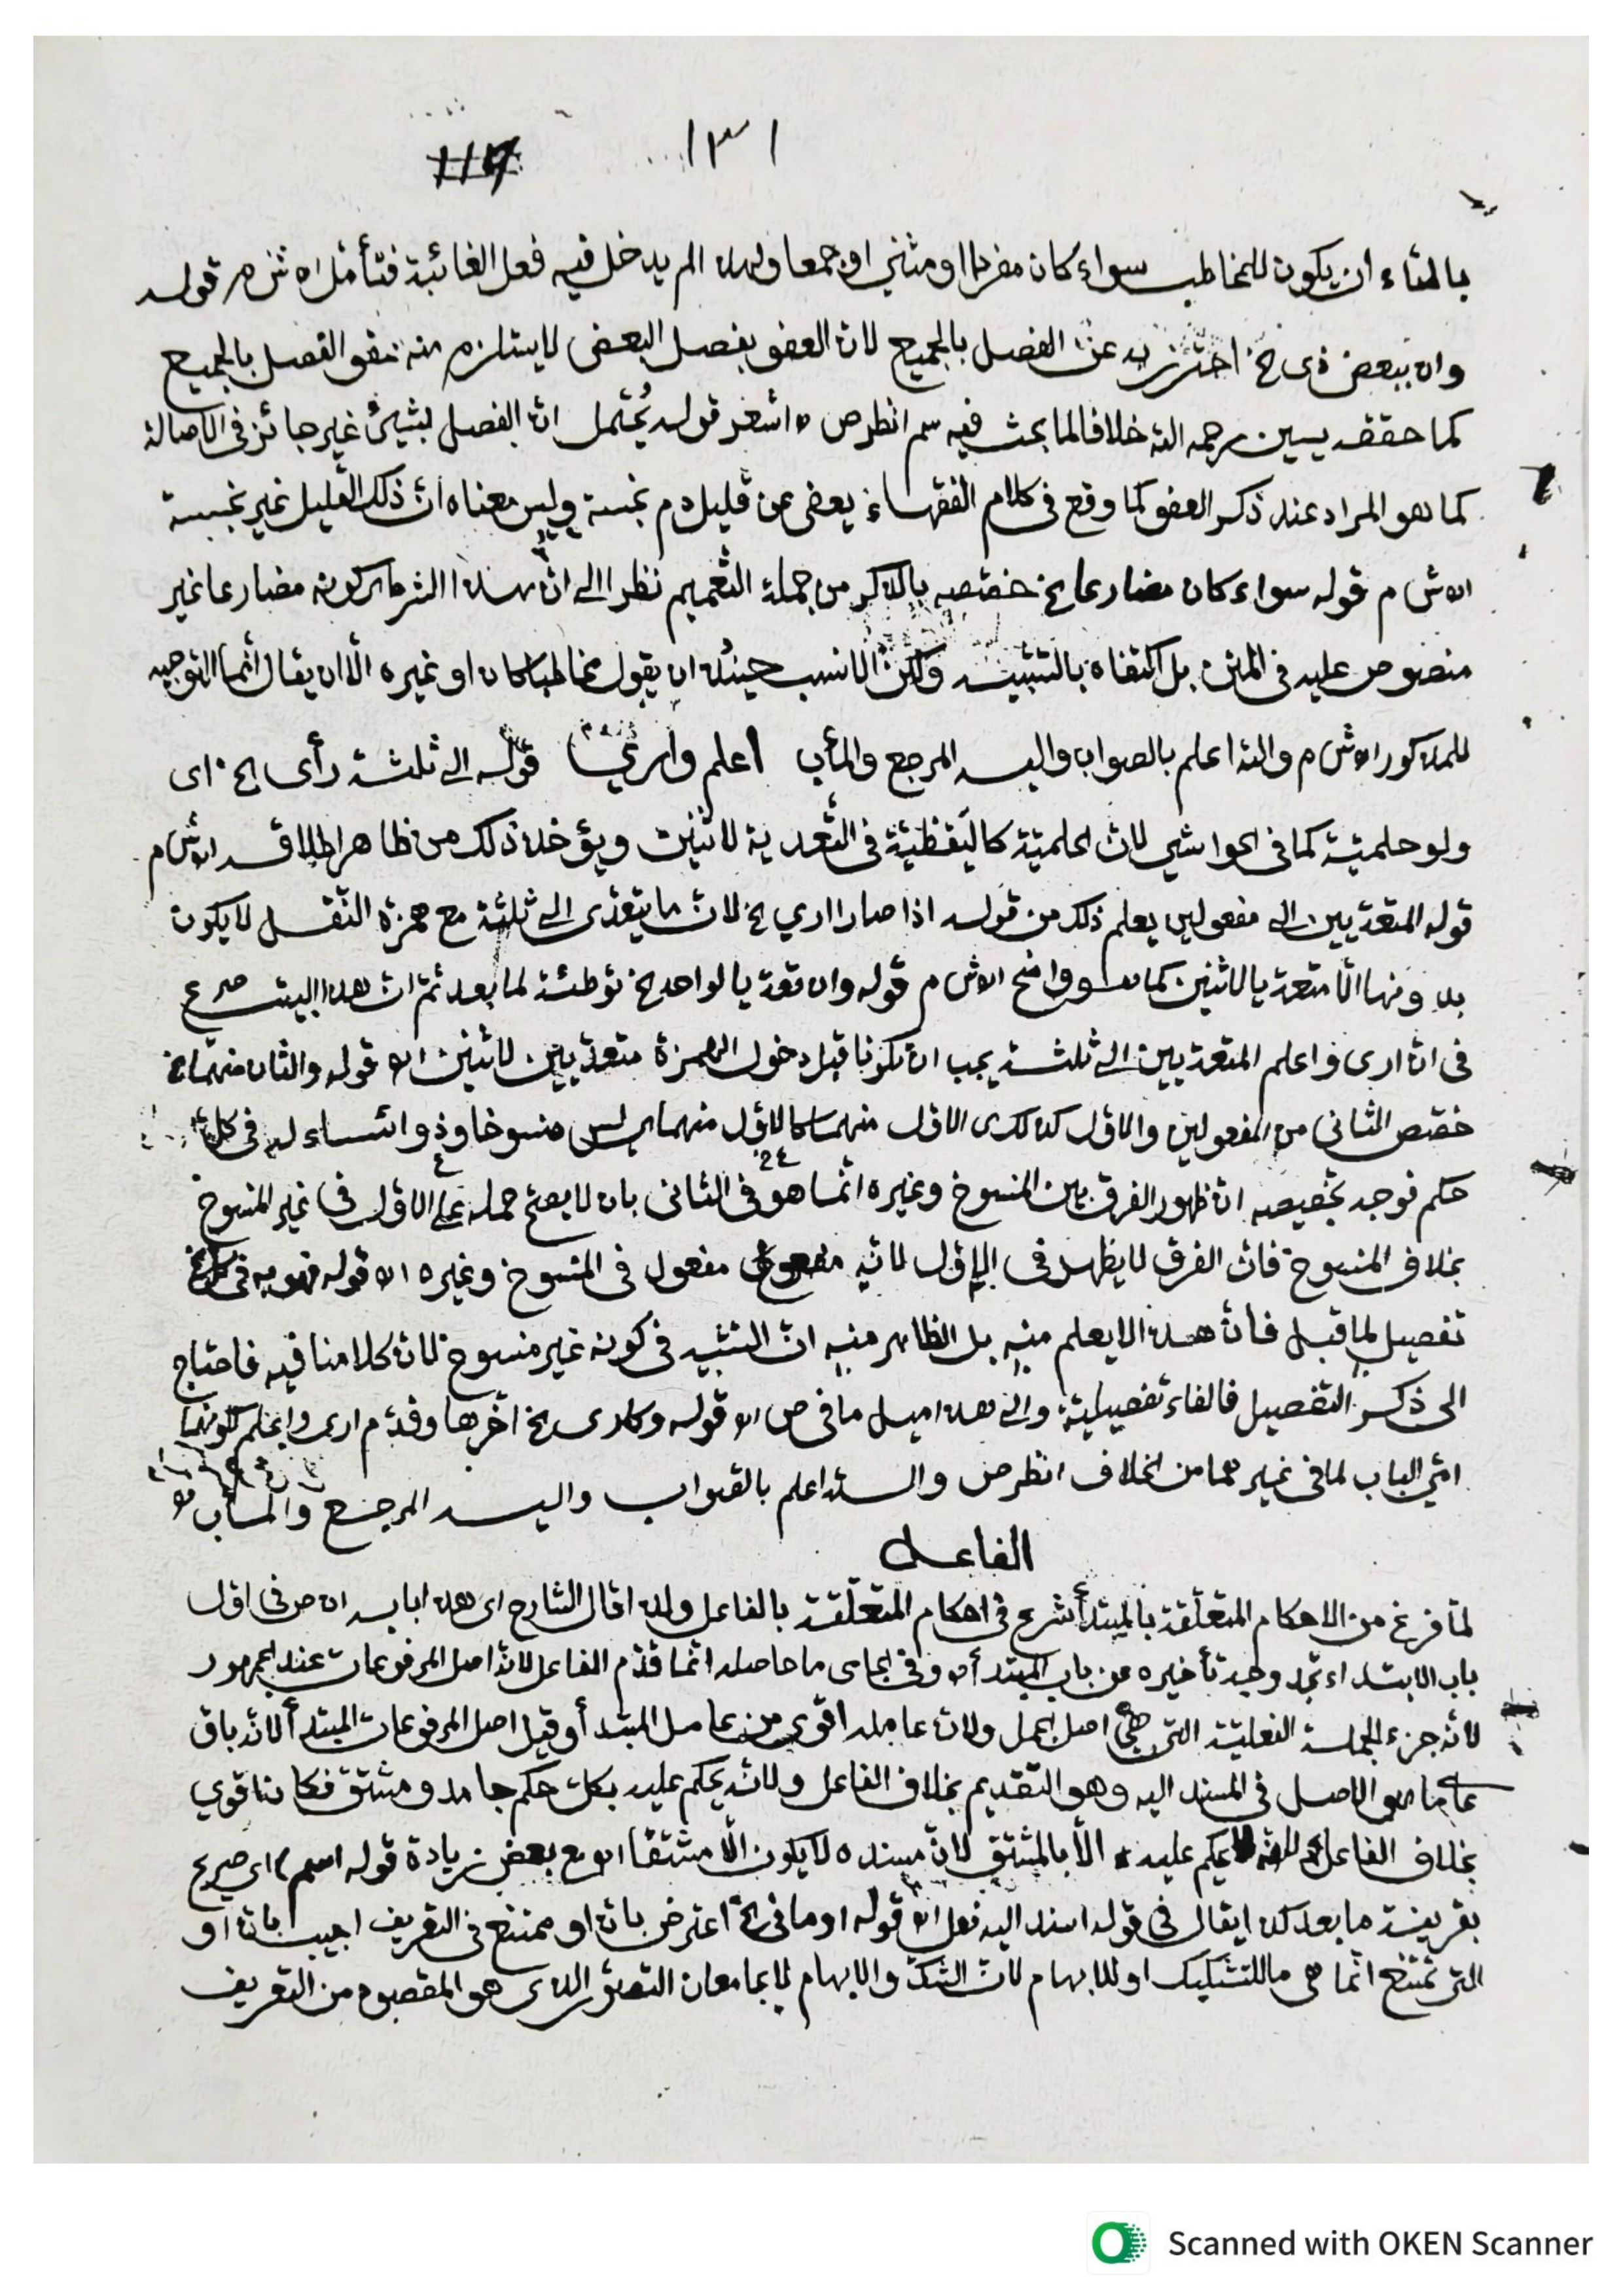 ١٣١ 117
بالتاء ان يكون للمخاطب سواء كان مفردا او مثنى او جمعا ولهذا لم يدخل فيه فعل الغائبة فتأمل اه ش م قوله
وان ببعض ذى الخ احترز به عن الفصل بالجميع لان العفو بفصل البعض لا يستلزم منه عفو الفصل بالجميع
كما حققه يسين رحمه الله خلافا لما بحث فيه سم انظر ص اه اشعر قوله يُحتمل انّ الفصل بشيئ غير جائز فى الاصالة
كما هو المراد عند ذكر العفو كما وقع فى كلام الفقهاء يعفى عن قليل دم نجسة وليس معناه انّ ذلك القليل غير نجسة
اه ش م قوله سواء كان مضارعا الخ خصّصه بالذكر من جملة التّعميم نظرا الى انّ هذا الشرط اى كونه مضارعا غير
منصوص عليه فى المتن بل اكتفاه بالتشبيه ولكنّ الانسب حينئذ ان يقول مخاطبا كان او غيره الّا ان يقال انّما التوجيه
للمذكور اه ش م والله اعلم بالصواب واليه المرجع والمأب اعلم وارى قوله الى ثلثة رأى الخ اى
ولو حلميّة كما فى الحواشي لانّ الحلميّة كاليَقظيّة فى التّعدية لاثنين ويؤخذ ذلك من ظاهر اطلاقه اه ش م
قوله المتعدّيين الى مفعولين يعلم ذلك من قوله اذا صارا اري الخ لانّ ما يتعدّى الى ثلثة مع همزة النّقل لا يكون
بدونها الّا متعدّيا لاثنين كما هو واضح اه ش م قوله وان تعدّيا لواحد الخ توطئة لما بعد ثمّ انّ هذا البيت صرع
فى انّ ارى واعلم المتعدّيين الى ثلثة يجب ان تكونا قبل دخول الهمزة متعدّيين لاثنين اه قوله والثان منهما الخ
خصّص الثانى من المفعولين والاوّل كذلك اى الاوّل منهما كالاوّل منهما اى ليس منسوخا وذو ائتساء له فى كلّ
حكم فوجه تخصيصه انّ ظهور الفرق بين المنسوخ وغيره انّما هو فى الثانى بان لا يصحّ حمله على الاوّل فى غير المنسوخ
بخلاف المنسوخ فانّ الفرق لا يظهر فى الاوّل لانّه مفعول فى المنسوخ وغيره اه قوله فهو به فى كلّ الخ
تفصيل لما قبل فانّ هذا لا يعلم منه بل الظاهر منه انّ التشبيه فى كونه غير منسوخ لانّ كلامنا فيه فاحتاج
الى ذكر التفصيل فالفاء تفصيليّة والى هذا اميل ما فى ص اه قوله وكارى الخ اخّرها وقدّم ارى واعلم لكونهما
امّي الباب لما فى غيرهما من الخلاف انظر ص والله اعلم بالصّواب واليه المرجع والمأب
الفاعل
لمّا فرغ من الاحكام المتعلّقة بالمبتدأ شرع فى احكام المتعلّقة بالفاعل ولذا قال الشارح اى هذا بابه ان ص فى اوّل
باب الابتداء تجد وجه تأخيره عن باب المبتدأ اه وفى الجامى ما حاصله انّما قدّم الفاعل لانّه اصل المرفوعات عند الجمهور
لانّه جزء الجملة الفعليّة التى هي اصل الجمل ولانّ عامله اقوى من عامل المبتدأ وقيل اصل المرفوعات المبتدأ لانّه باق
على ما هو الاصل فى المسند اليه وهو التقديم بخلاف الفاعل ولانّه يحكم عليه بكلّ حكم جامد ومشتق فكان اقوي
بخلاف الفاعل يحكم عليه الّا بالمشتق لانّ مسنده لا يكون الّا مشتقّا اه مع بعض زيادة قوله اسم اى صريح
بقرينة ما بعد كذا يقال فى قوله اسند اليه فعل اه قوله او ما فى الخ اعترض بانّ او ممتنع فى التعريف اجيب بانّ او
التى تمتنع انّما هى ما للتشكيك او للابهام لانّ الشكّ والابهام لا يجامعان التصوّر الذى هو المقصود من التعريف
Scanned with OKEN Scanner